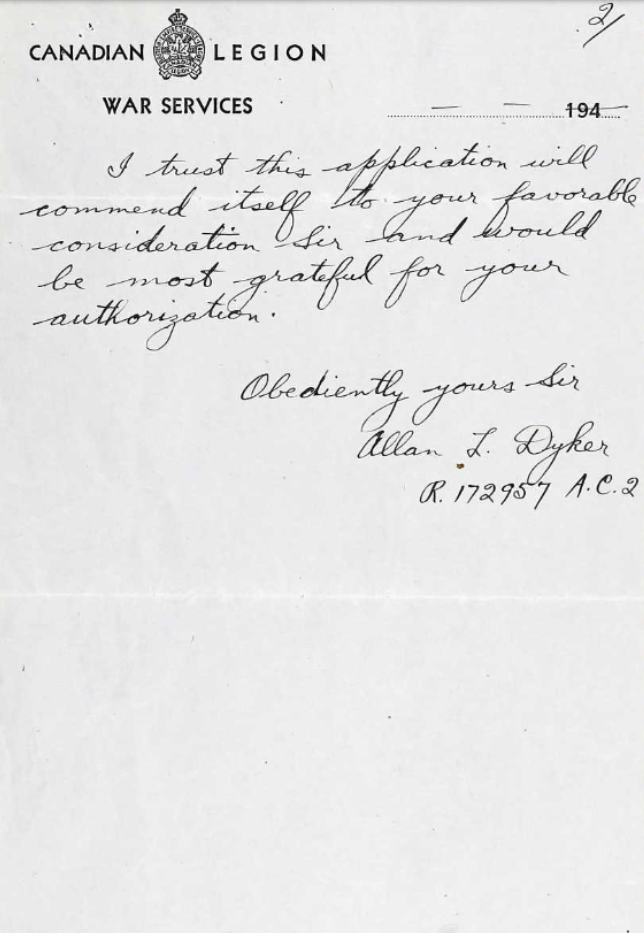 2/
CANADIAN LEGION
WAR SERVICES
— — 194—
I trust this application will
commend itself to your favorable
consideration Sir and would
be most grateful for your
authorization.
Obediently yours Sir
Allan L. Dyker
R. 172957 A.C.2